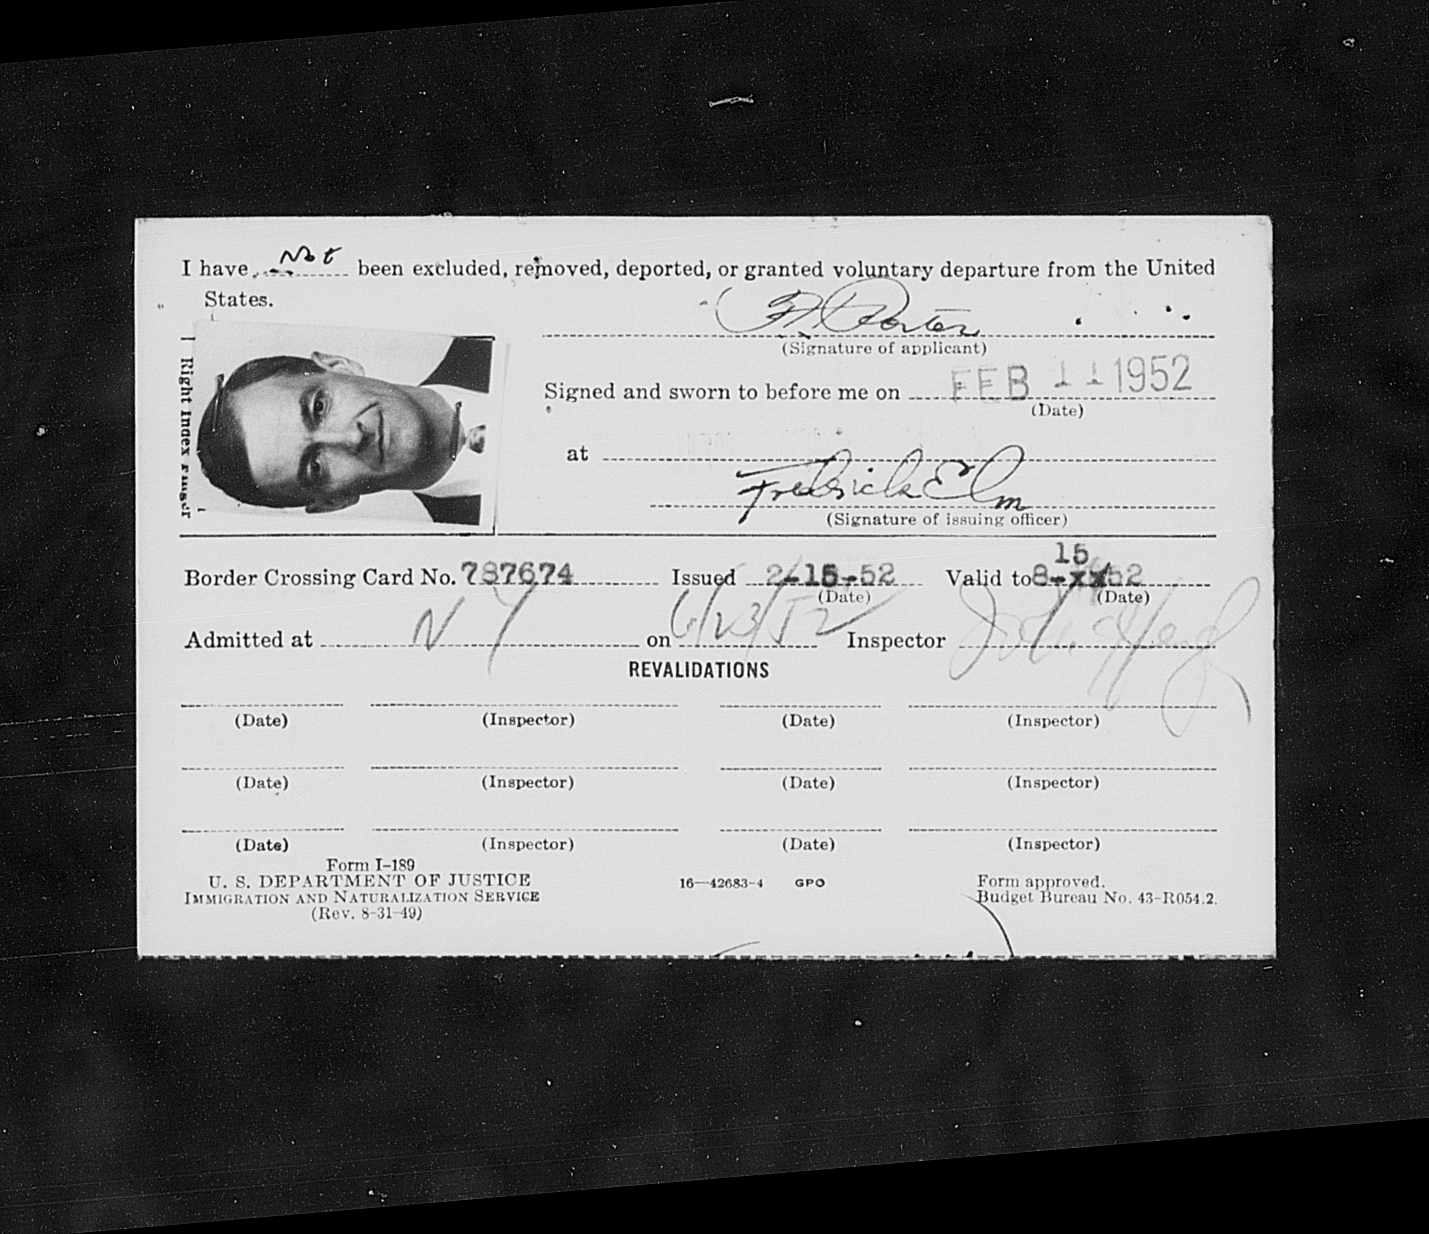 I have Not been excluded, removed, deported, or granted voluntary departure from the United
States.
Porter
(Signature of applicant)
Right Index Finger
Signed and sworn to before me on FEB 11 1952
(Date)
at
Frederick Elm
(Signature of issuing officer)
15
Border Crossing Card No. 787674 Issued 2-15-52 Valid to 8-xx52
(Date) (Date)
Admitted at NY on 6/23/52 Inspector
REVALIDATIONS
(Date) (Inspector) (Date) (Inspector)
(Date) (Inspector) (Date) (Inspector)
(Date) (Inspector) (Date) (Inspector)
Form I-189
U. S. DEPARTMENT OF JUSTICE
IMMIGRATION AND NATURALIZATION SERVICE
(Rev. 8-31-49)
16—42683-4 GPO
Form approved.
Budget Bureau No. 43-R054.2.